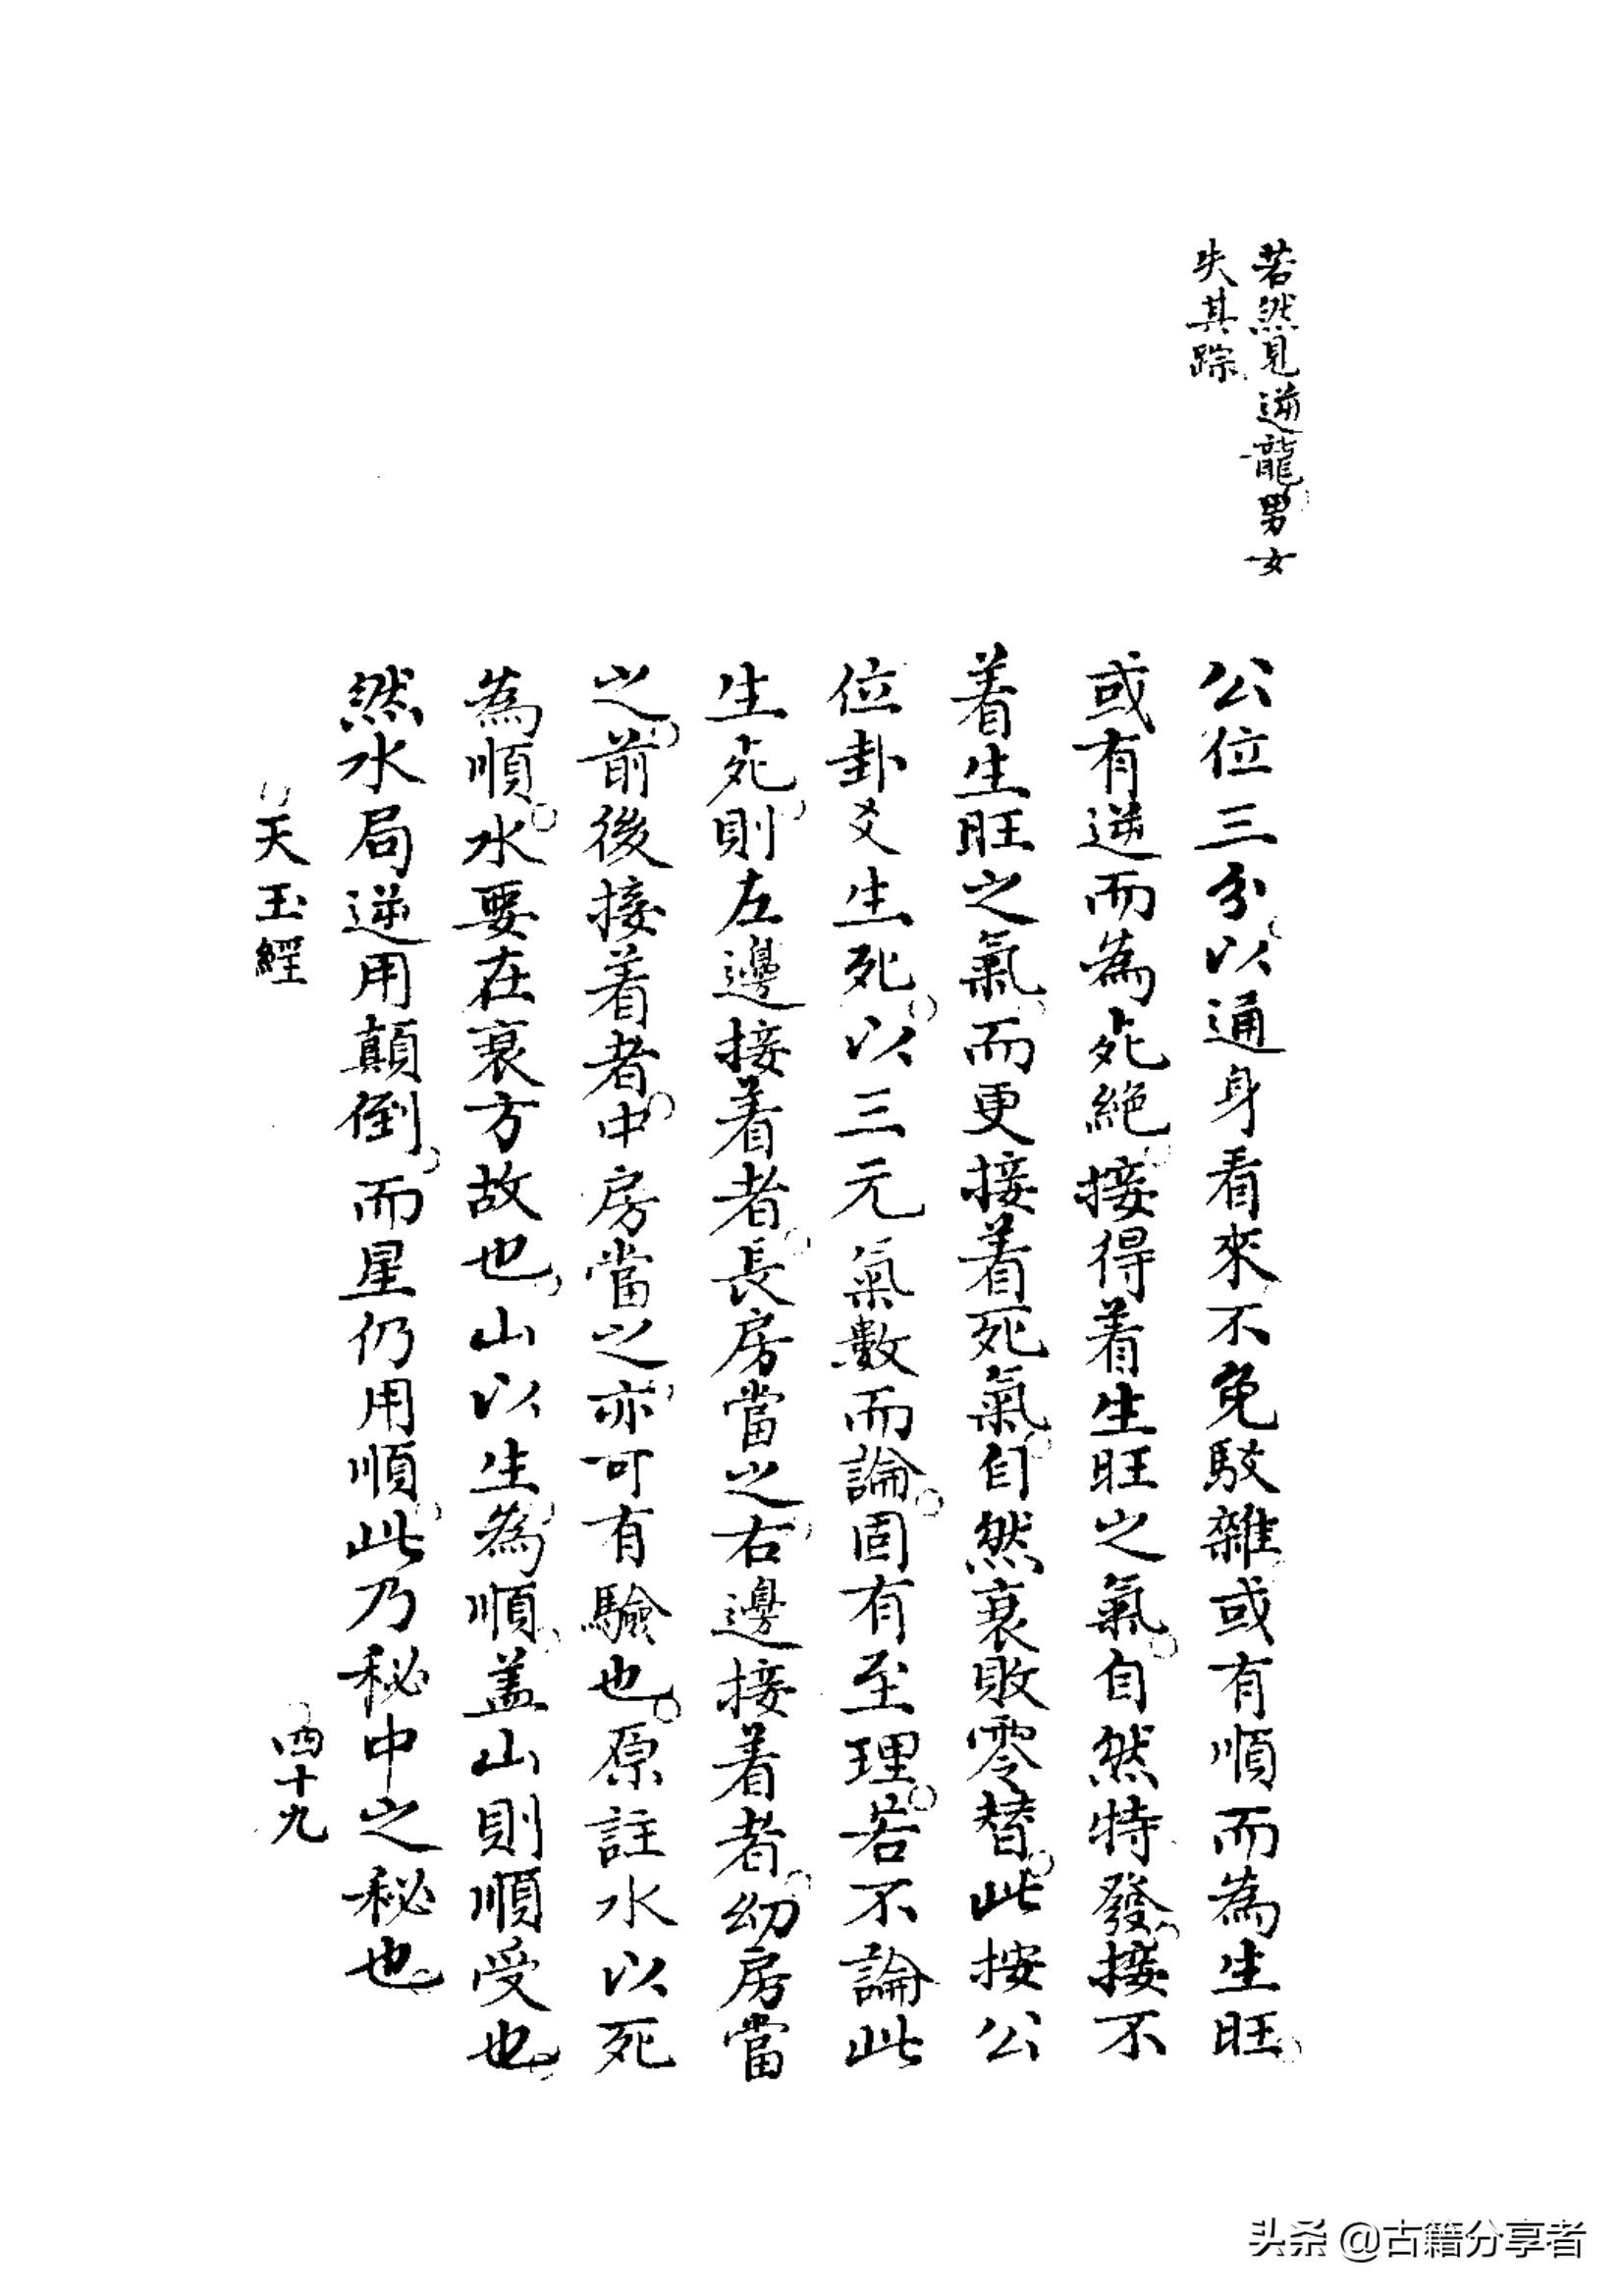 若然見逆龍男女
失其踪
公位三分以通身看來不免駁雜或有順而為生旺
或有逆而為死絕接得着生旺之氣自然特發接不
着生旺之氣而更接着死氣自然衰敗零替此按公
位卦爻生死以三元氣數而論固有至理若不論此
生死則左邊接着者長房當之右邊接着者幼房當
之前後接着者中房當之亦可有驗也原註水以死
為順水要在衰方故也山以生為順盖山則順受也
然水局逆用顛倒而星仍用順此乃秘中之秘也
天玉經
四十九
头条 @古籍分享者